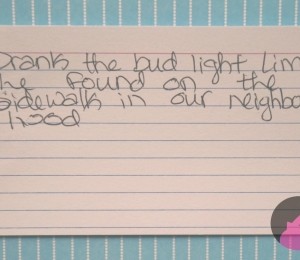 Drank the bud light Lim
he found on the
sidewalk in our neighbo
hood